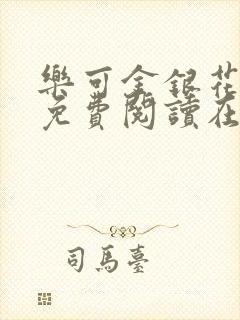 樂可金銀花
免費閱讀在
司馬臺